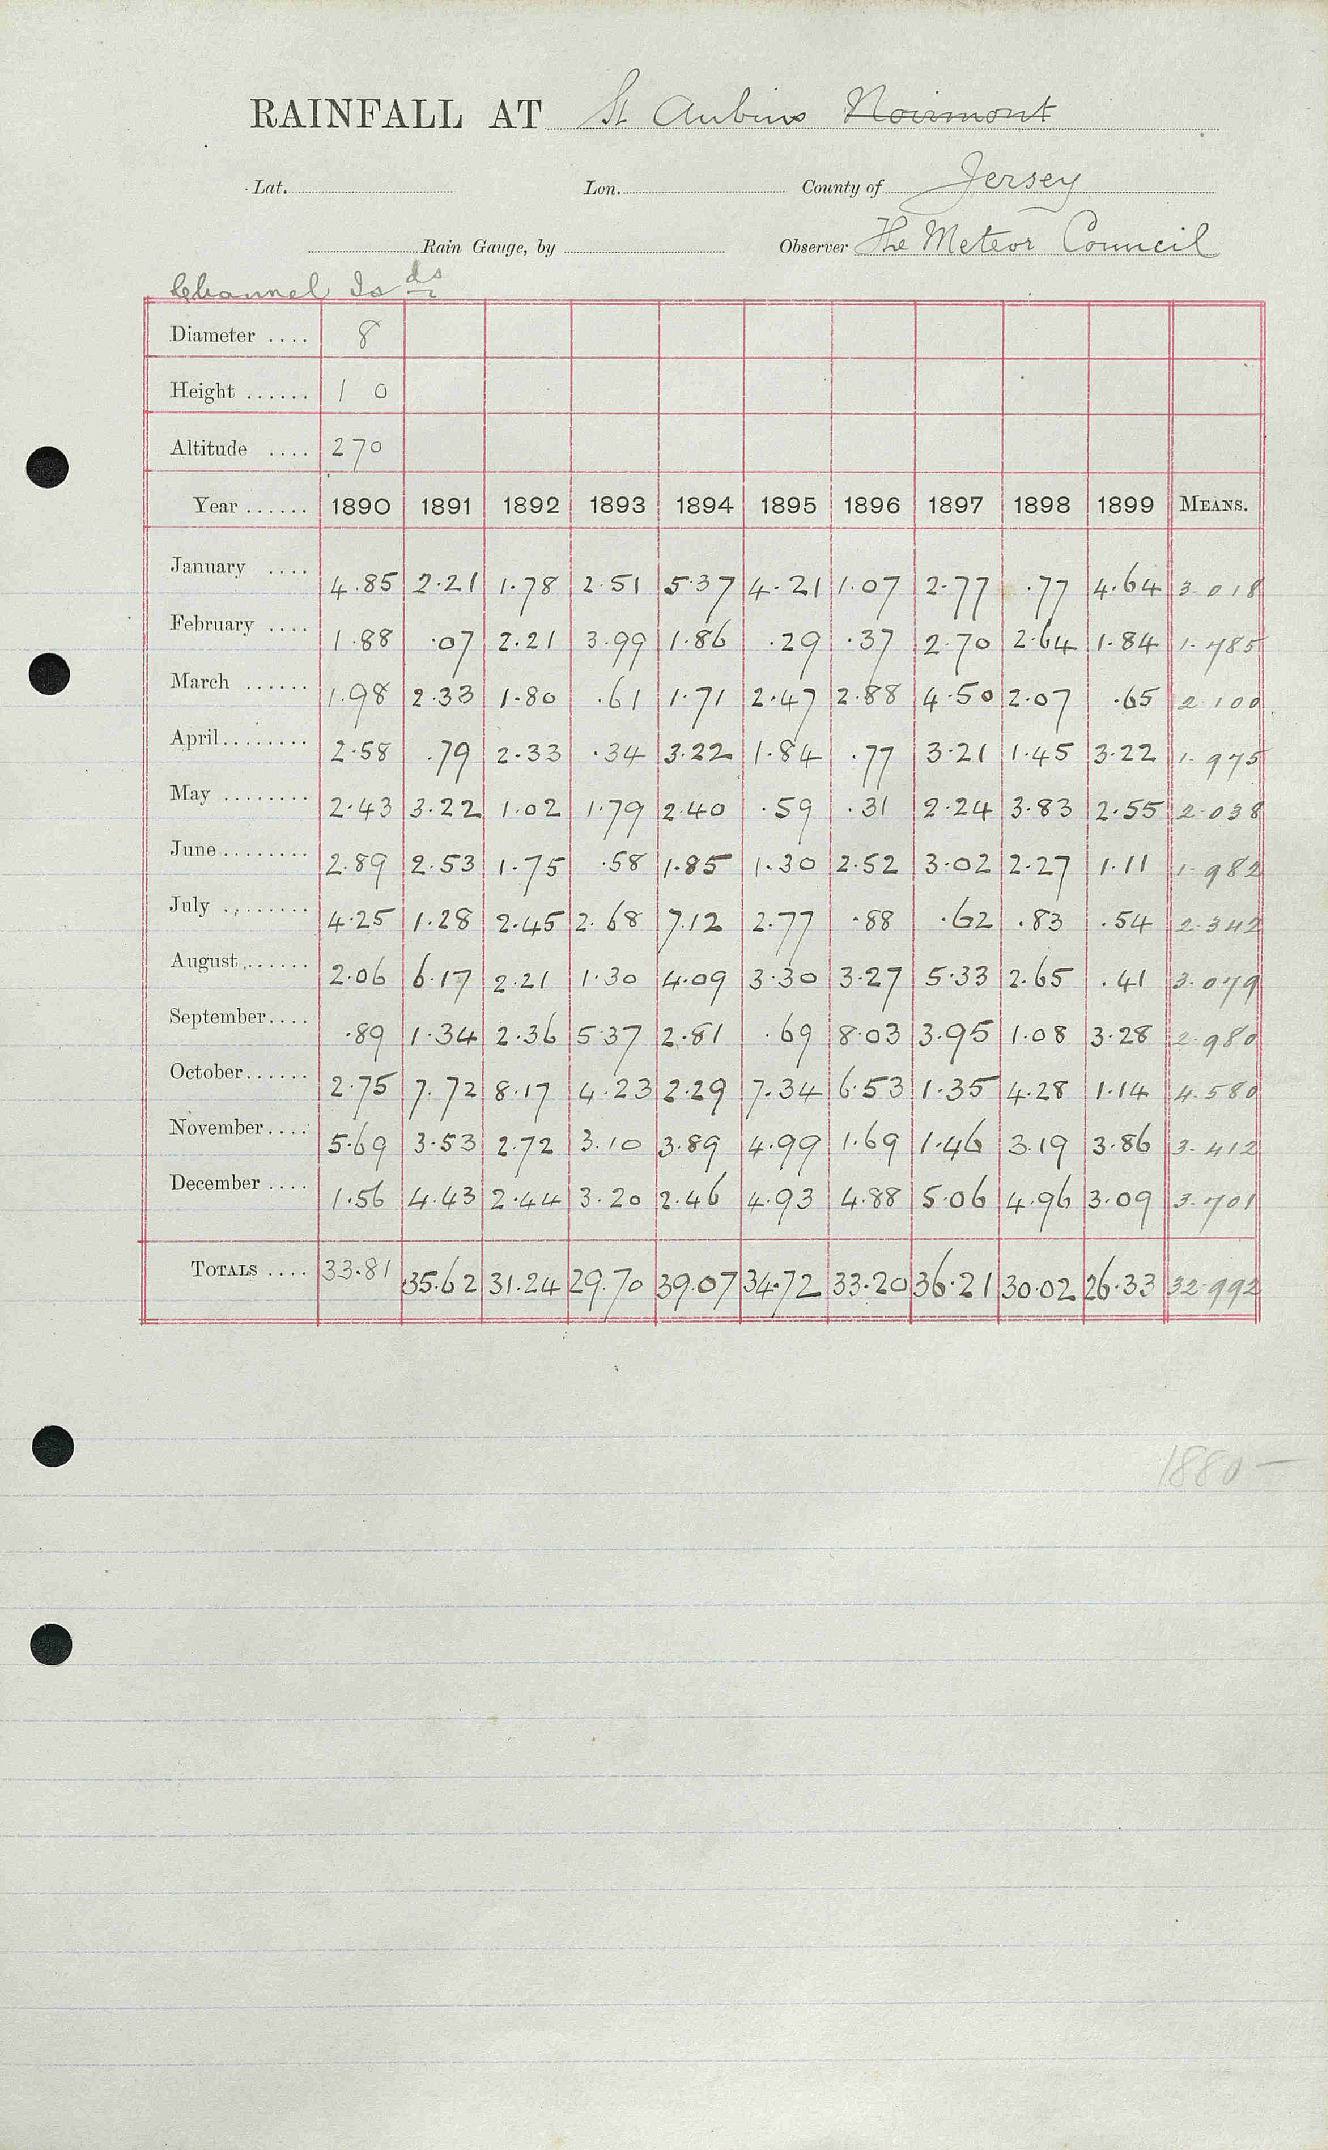 RAINFALL AT St Aubins Noirmont
Lat. Lon. County of Jersey
Rain Gauge, by Observer The Meteor Council
Channel Isds
Diameter .... 8
Height ...... 1 0
Altitude .... 270
Year ...... 1890 1891 1892 1893 1894 1895 1896 1897 1898 1899 MEANS.
January .... 4.85 2.21 1.78 2.51 5.37 4.21 1.07 2.77 .77 4.64 3.018
February .... 1.88 .07 2.21 3.99 1.86 .29 .37 2.70 2.64 1.84 1.785
March ...... 1.98 2.33 1.80 .61 1.71 2.47 2.88 4.50 2.07 .65 2.100
April........ 2.58 .79 2.33 .34 3.22 1.84 .77 3.21 1.45 3.22 1.975
May ........ 2.43 3.22 1.02 1.79 2.40 .59 .31 2.24 3.83 2.55 2.038
June........ 2.89 2.53 1.75 .58 1.85 1.30 2.52 3.02 2.27 1.11 1.982
July ........ 4.25 1.28 2.45 2.68 7.12 2.77 .88 .62 .83 .54 2.342
August...... 2.06 6.17 2.21 1.30 4.09 3.30 3.27 5.33 2.65 .41 3.079
September.... .89 1.34 2.36 5.37 2.81 .69 8.03 3.95 1.08 3.28 2.980
October...... 2.75 7.72 8.17 4.23 2.29 7.34 6.53 1.35 4.28 1.14 4.580
November.... 5.69 3.53 2.72 3.10 3.89 4.99 1.69 1.46 3.19 3.86 3.412
December .... 1.56 4.43 2.44 3.20 2.46 4.93 4.88 5.06 4.96 3.09 3.701
TOTALS .... 33.81 35.62 31.24 29.70 39.07 34.72 33.20 36.21 30.02 26.33 32.992
1880-